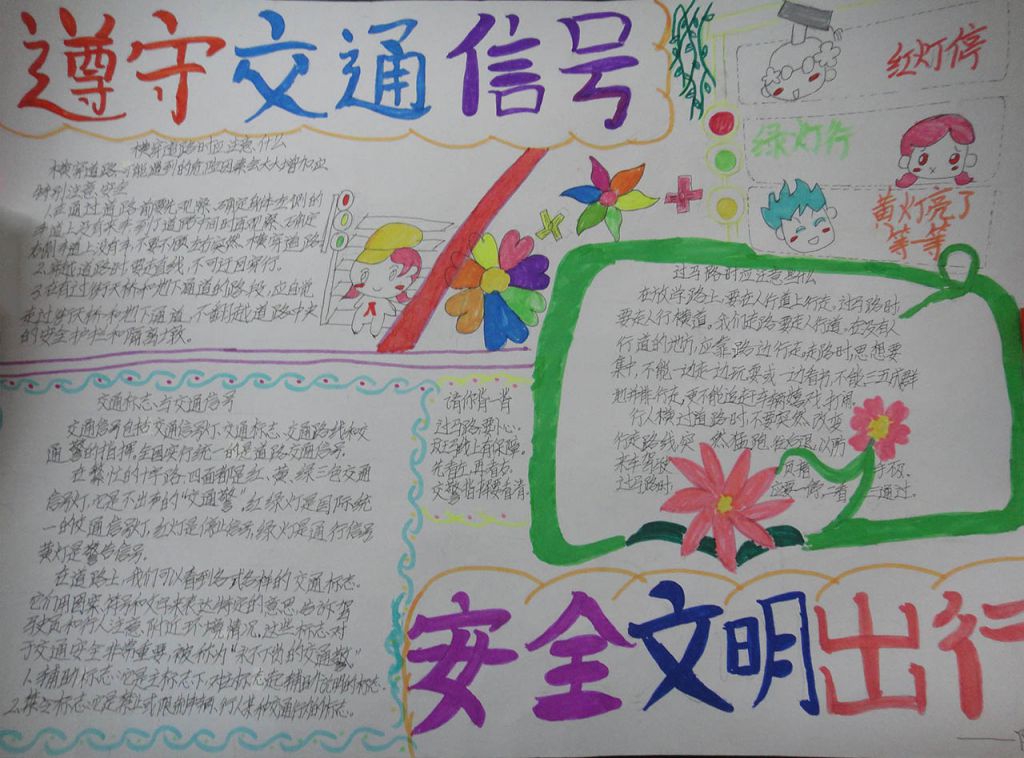 遵守交通信号
红灯停
绿灯行
黄灯亮了
等一等
横穿道路时应注意什么
横穿道路可能遇到的危险因素会大大增加应
特别注意安全
1.在通过道路前要先观察,确定身体左侧的
车道上没有来车到了道路中间时再观察,确定
右侧车道上没有车不要不顾左右突然横穿道路
2.穿越道路时要走直线,不可迂回穿行。
3.在有过街天桥和地下通道的路段,应自觉
走过街天桥和地下通道,不翻越道路中央
的安全护栏和隔离墩。
过马路时应注意些什么
在放学路上,要在人行道上行走,过马路时
要走人行横道。我们走路要走人行道,在没有人
行道的地方,应靠路边行走,走路时思想要
集中,不能一边走一边玩耍或一边看书,不能三五成群
并排行走,更不能追赶车辆嬉戏打闹。
行人横过道路时,不要突然改变
行走路线,突 然猛跑
过马路时, 应要一停、二看、三通过。
交通标志与交通信号
交通信号包括交通信号灯、交通标志、交通路线和交
通警的指挥。全国实行统一的是道路交通信号。
在繁忙的十字路,四面都是红、黄、绿三色交通
信号灯,它是不出声的“交通警”红绿灯是国际统
一的交通信号灯,红灯是停止信号,绿灯是通行信号
黄灯是警告信号。
在道路上,我们可以看到各式各样的交通标志.
它们用图案、符号和文字来表达特定的意思,告诉驾
驶员和行人注意附近环境情况。这些标志对
于交通安全非常重要,被称为“永不下岗的交通警”
1.辅助标志:它是主标志下,对主标志起辅助说明的标志.
2.禁令标志:它是禁止或限制车辆、行人某种交通行为的标志。
请你背一背
过马路要小心,
斑马线上有保障。
先看左,再看右,
交警指挥要看清.
安全文明出行